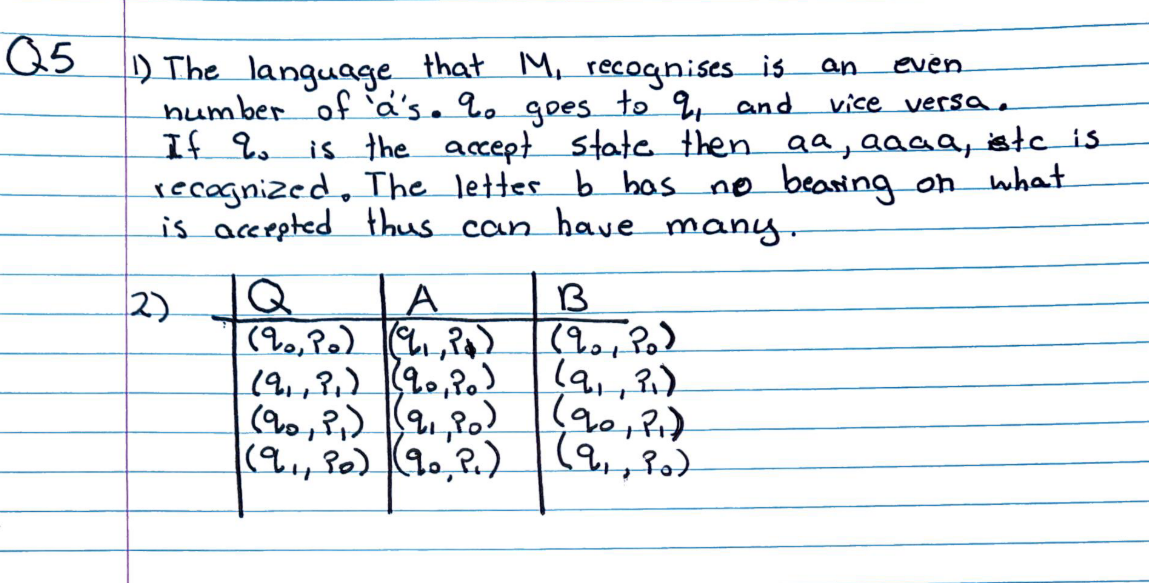 Q5
1) The language that M₁ recognises is an even
number of 'a's. q₀ goes to q₁ and vice versa.
If q₀ is the accept state then aa, aaaa, etc is
recognized. The letter b has no bearing on what
is accepted thus can have many.
2) Q A B
(q₀, P₀) (q₁, P₁) (q₀, P₀)
(q₁, P₁) (q₀, P₀) (q₁, P₁)
(q₀, P₁) (q₁, P₀) (q₀, P₁)
(q₁, P₀) (q₀, P₁) (q₁, P₀)